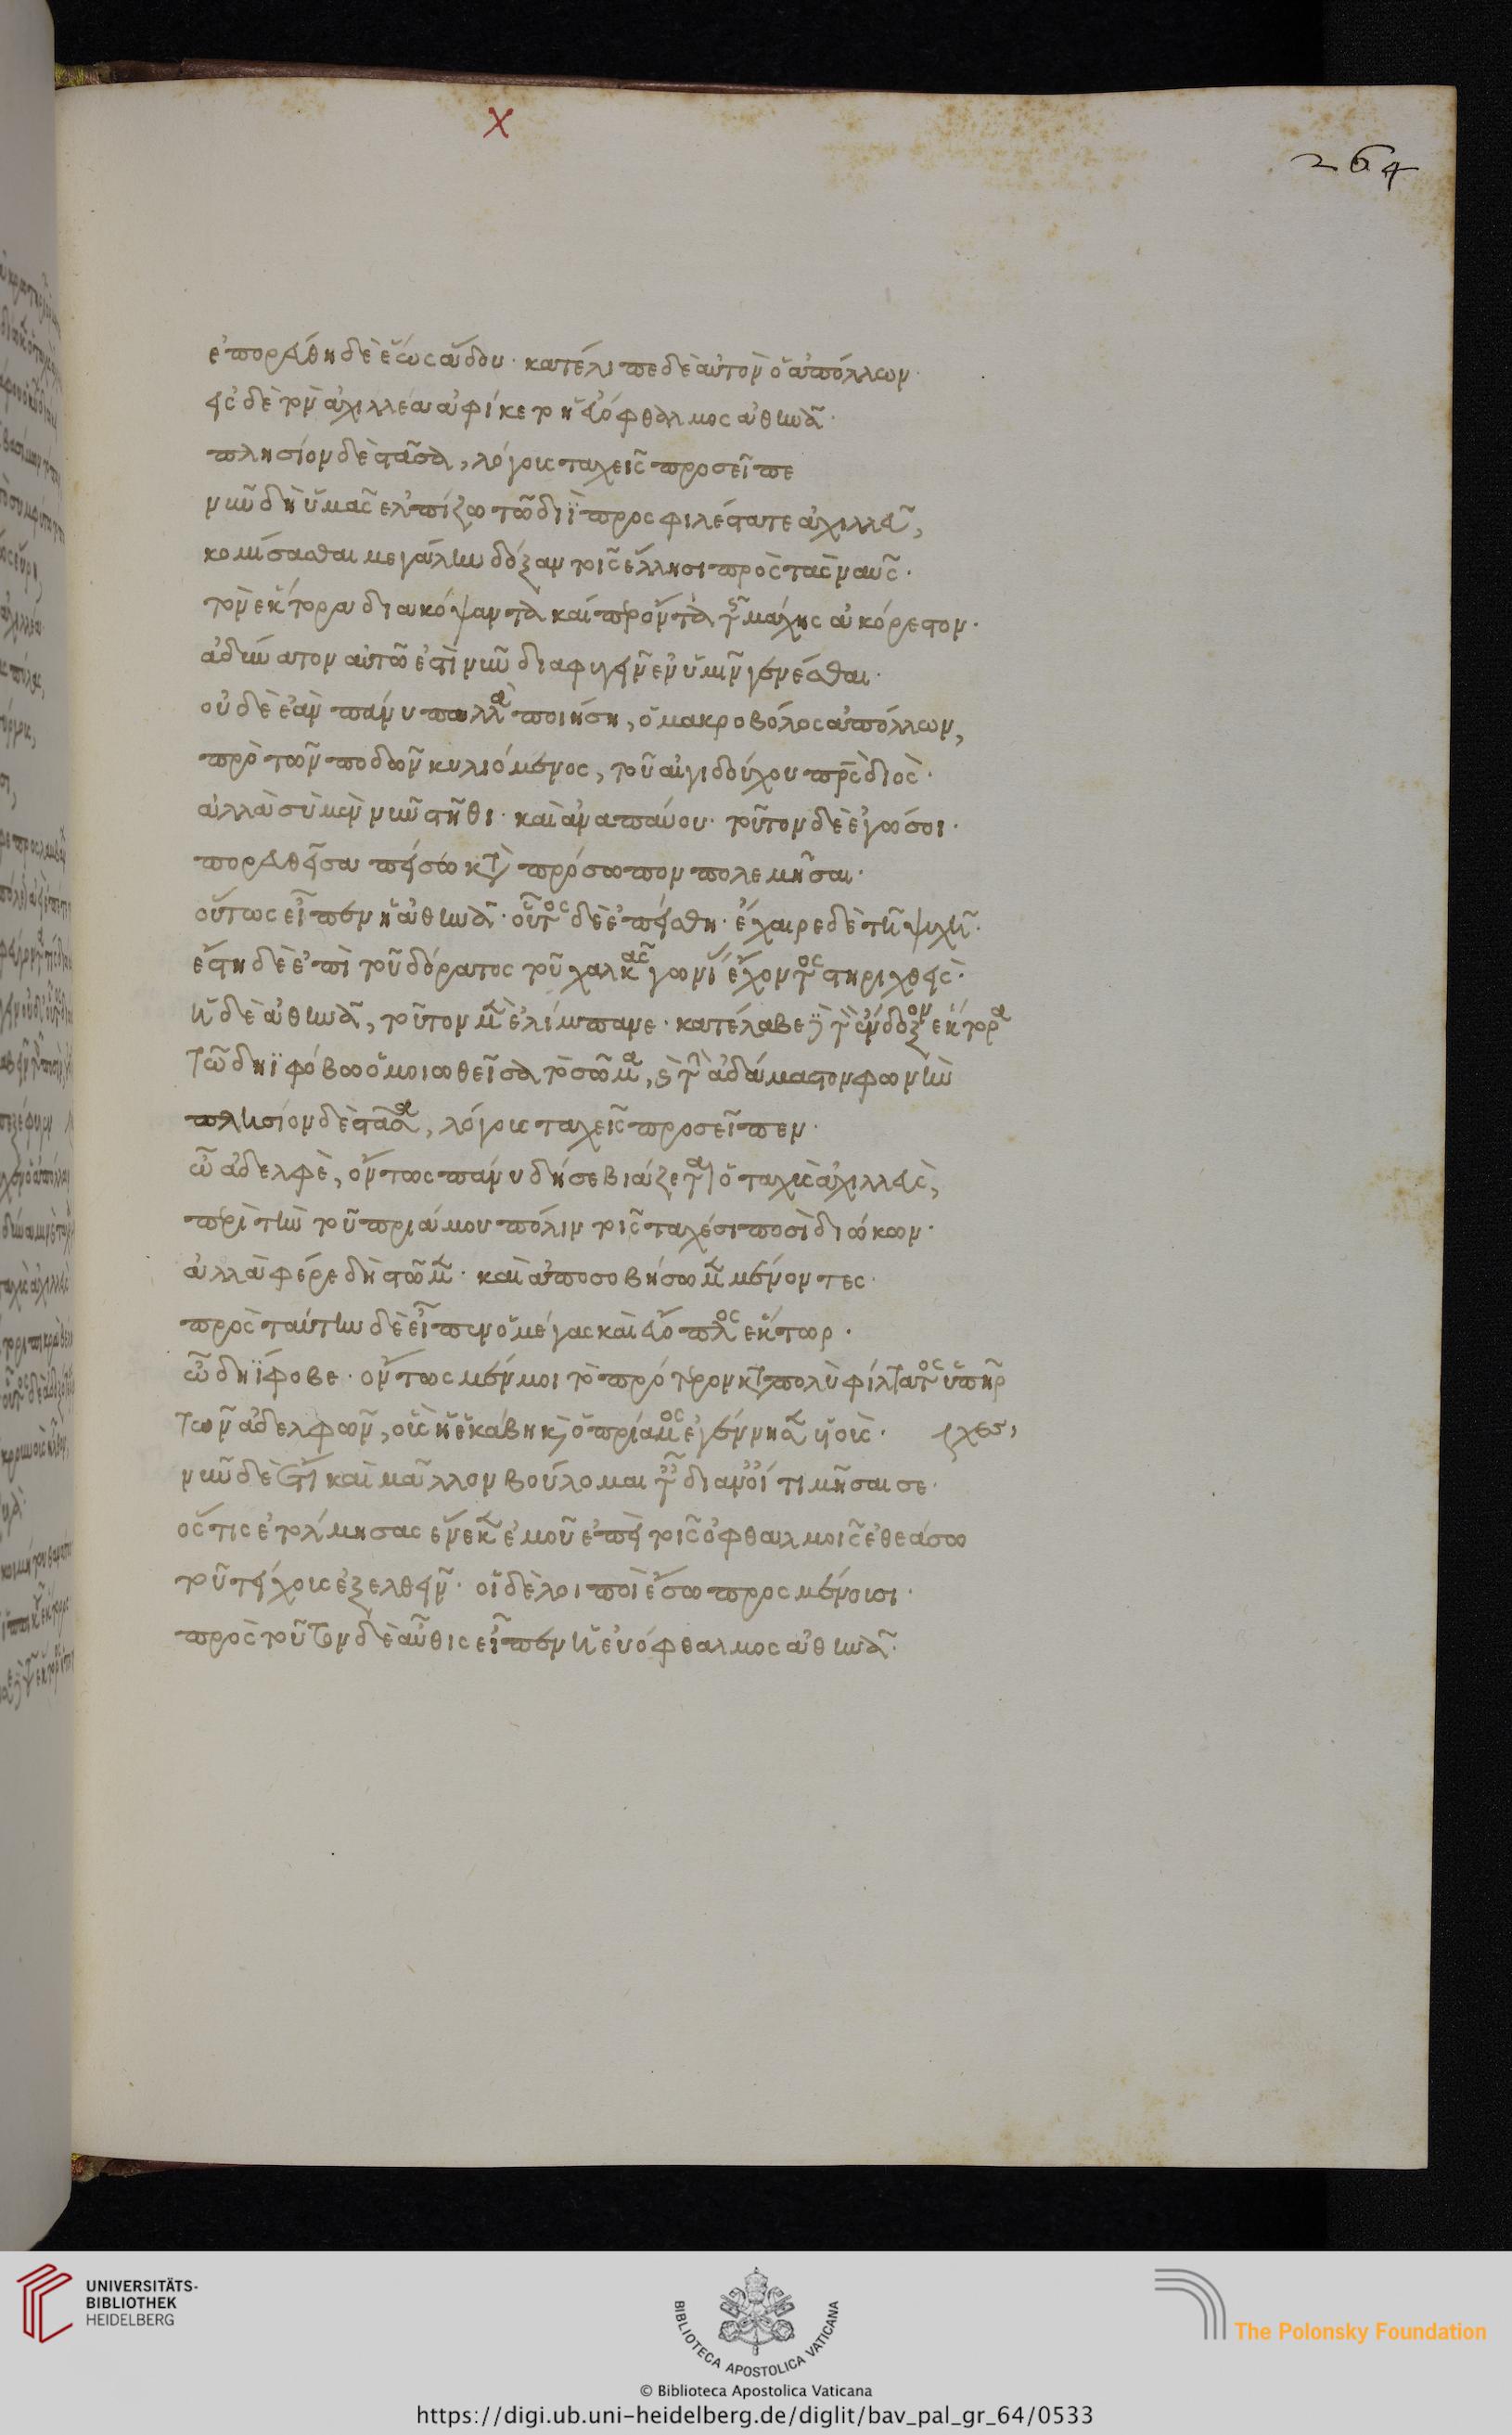 χ
264
ἐπορεύθη δὲ ἕως ἅδου· κατέλιπε δὲ αὐτὸν ὁ ἀπόλλων·
εἰς δὲ τὸν ἀχιλλέα ἀφίκετο ἡ εὐόφθαλμος ἀθηνᾶ·
πλησίον δὲ στᾶσα, λόγοις ταχεῖς προσεῖπε
νῦν δὴ ὑμᾶς ἐλπίζω τῶ διῒ προσφιλέστατε ἀχιλλεῦ,
κομίσασθαι μεγάλην δόξαν τοῖς ἕλλησι πρὸς τὰς ναῦς·
τὸν ἕκτορα διακόψαντα καίπερ ὄντα τῆς μάχης ἀκόρεστον·
ἀδύνατον αὐτῶ ἐστὶ νῦν διαφυγεῖν ἐν ὑμῖν γενέσθαι·
οὐδὲ ἐὰν πάνυ πολλὰ ποιήση, ὁ μακροβόλος ἀπόλλων,
πρὸ τῶν ποδῶν κυλιόμενος, τοῦ αἰγιδούχου πρς διὸς·
ἀλλὰ σὺ μὲν νῦν στῆθι· καὶ ἀναπαύου· τοῦτον δὲ ἐγώ σοι·
πορευθεῖσα πείσω κτ πρόσωπον πολεμῆσαι·
οὕτως εἶπεν ἡ ἀθηνᾶ· οὗτος δὲ ἐπείσθη· ἔχαιρε δὲ τῆ ψυχῆ·
ἔστη δὲ ἐπὶ τοῦ δόρατος τοῦ χαλκᾶς γωνί ἔχοντος στηριχθεὶς·
ἡ δὲ ἀθηνᾶ, τοῦτον μὲν ἐλίμπανε· κατέλαβε δὲ τὸν ἔνδοξον ἕκτορα
τῶ δηϊφόβω ὁμοιωθεῖσα τὸ σῶμα, καὶ τὴν ἀδάμαστον φωνὴν
πλησίον δὲ στᾶσα, λόγοις ταχεῖς προσεῖπεν·
ὦ ἀδελφὲ, ὄντως πάνυ δή σε βιάζεται ὁ ταχὺς ἀχιλλεὺς,
περὶ τὴν τοῦ πριάμου πόλιν τοῖς ταχέσι ποσὶ διώκων·
ἀλλὰ φέρε δὴ στῶμεν· καὶ ἀποσοβήσωμεν μένοντες·
πρὸς ταύτην δὲ εἶπεν ὁ μέγας καὶ εὔοπλος ἕκτωρ·
ὦ δηΐφοβε· ὄντως μέν μοι τὸ πρότερον κτπολὺ φίλτατος ὑπῆρ
τῶν ἀδελφῶν, οἷς ἡ ἑκάβη καὶ ὁ πρίαμος ἐγέννησαν υἱοὶς· ρχες,
νῦν δὲ ἔτι καὶ μᾶλλον βούλομαι τῆ διανοί τιμῆσαι σε·
ὅστις ἐτόλμησας ἕνεκεν ἐμοῦ ἐπεὶ τοῖς ὀφθαλμοῖς ἐθεάσω
τοῦ τείχοις ἐξελθεῖν· οἱ δὲ λοιποὶ ἔσω προσμένουσι·
πρὸς τοῦτον δὲ αὖθις εἶπεν ἡ εὐόφθαλμος ἀθηνᾶ·
UNIVERSITÄTS-
BIBLIOTHEK
HEIDELBERG
BIBLIOTECA APOSTOLICA VATICANA
The Polonsky Foundation
© Biblioteca Apostolica Vaticana
https://digi.ub.uni-heidelberg.de/diglit/bav_pal_gr_64/0533